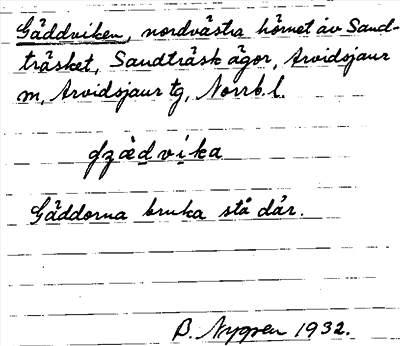 Gäddviken, nordvästra hörnet av Sand-
träsket, Sandträsk ägor, Arvidsjaur
m, Arvidsjaur tg, Norrb. l.
gzàdvika
Gäddorna bruka stå där.
B. Nygren 1932.